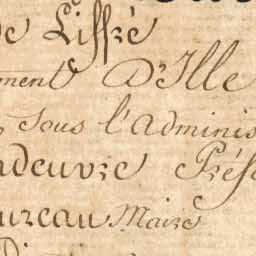 de Liffré
ment D'Ille
sous l'Adminis
deuvre Préf
ureau Maire